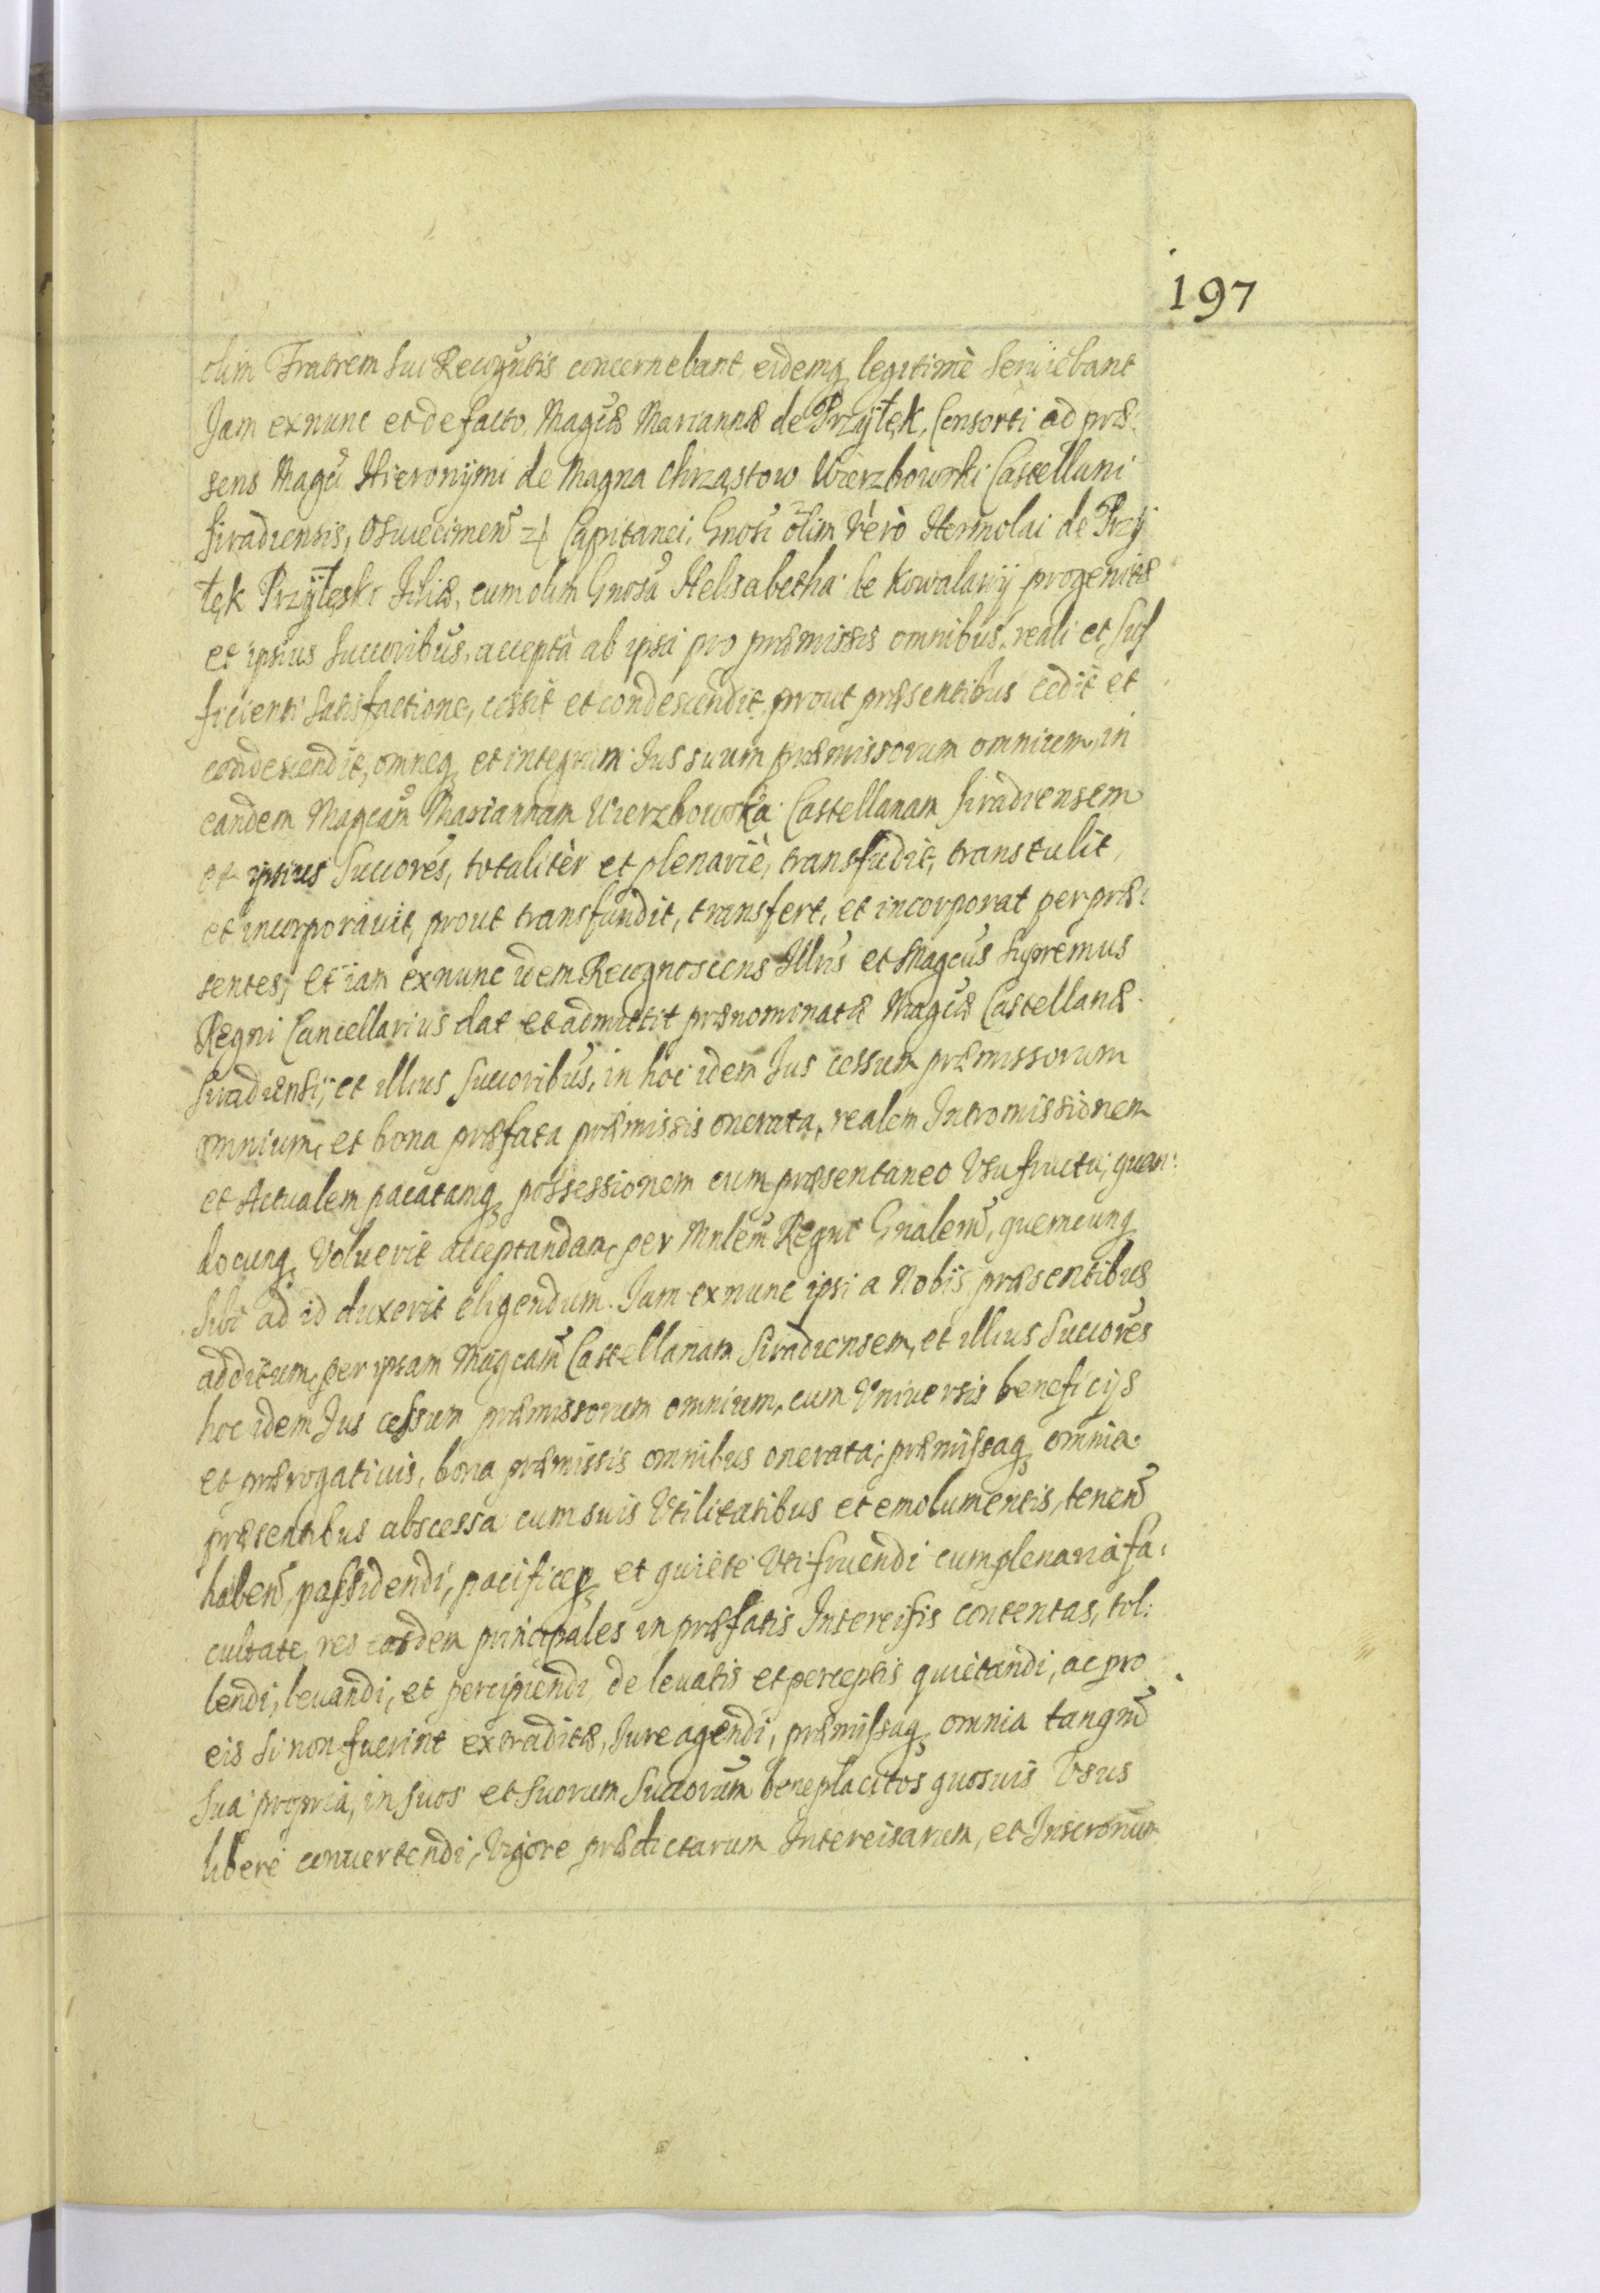 197
olim Fratrem sui Recogntis concernebant, eidemq legitimè Seruiebant
Jam exnunc et de facto, Magcæ Mariannæ de Przÿtęk, Consorti ad præ:
sens Magci Hieronÿmi de Magna Chrząstow Wierzbowski Castellani
Siradiensis, Oswecimen̄ Capitanei, Gnosi olim verò Hermolai de Przÿ
tęk Przÿtęski Filiæ, cum olim Gnosa Helisabetha de Kowalowÿ progenitæ
et ipsius Succoribus, acceptà ab ipsa pro præmissis omnibus, reali et suf
ficienti Satisfactione, cessit et condescendit, prout præsentibus cedit et
condescendit, omneq et integrum Jus suum præmissorum omnium, in
eandem Magcam Mariannam Wierzbowska Castellanam Siradiensem
et ipsius Succores, totalitèr et plenariè, transfudit, transtulit,
et incorporauit, prout transfundit, transfert, et incorporat per præ:
sentes; et iam exnunc idem Recognoscens Illris et Magcus Supremus
Regni Cancellarius dat et admittit prænominatæ Magcæ Castellanæ
Siradiensi, et illius Succoribus, in hoc idem Jus cessum præmissorum
omnium, et bona præfata præmissis onerata, realem Intromissionem
et Actualem pacatamq possessionem cum præsentaneo Vsufructu, quan:
docunq Voluerit acceptandam, per Mnlem Regni Gnalem, quemcunq
sibi ad id duxerit eligendum. Jam exnunc ipsi a Nobis præsentibus
additum, per ipsam Magcam Castellanam Siradiensem, et illius Succores
hoc idem Jus cessum præmissorum omnium, cum Vniuersis beneficijs
et prærogatiuis, bona præmissis omnibus onerata, præmissaq omnia
præsentibus abscessa cum suis Vtilitatibus et emolumentis, tenen̄
haben̄, possidendi, pacificeq et quietè Vtifruendi cum plenaria fa:
cultate, res easdem principales in præfatis Intercisis contentas, tol:
lendi, leuandi, et percipiendi, de leuatis et perceptis quietandi, ac pro
eis si non fuerint extraditæ, Jure agendi, præmissaq omnia tanqm
sua propria, in suos et suorum Succorum beneplacitos quosuis Vsus
liberè conuertendi, Vigore prædictarum Intercisarum, et Inscronum